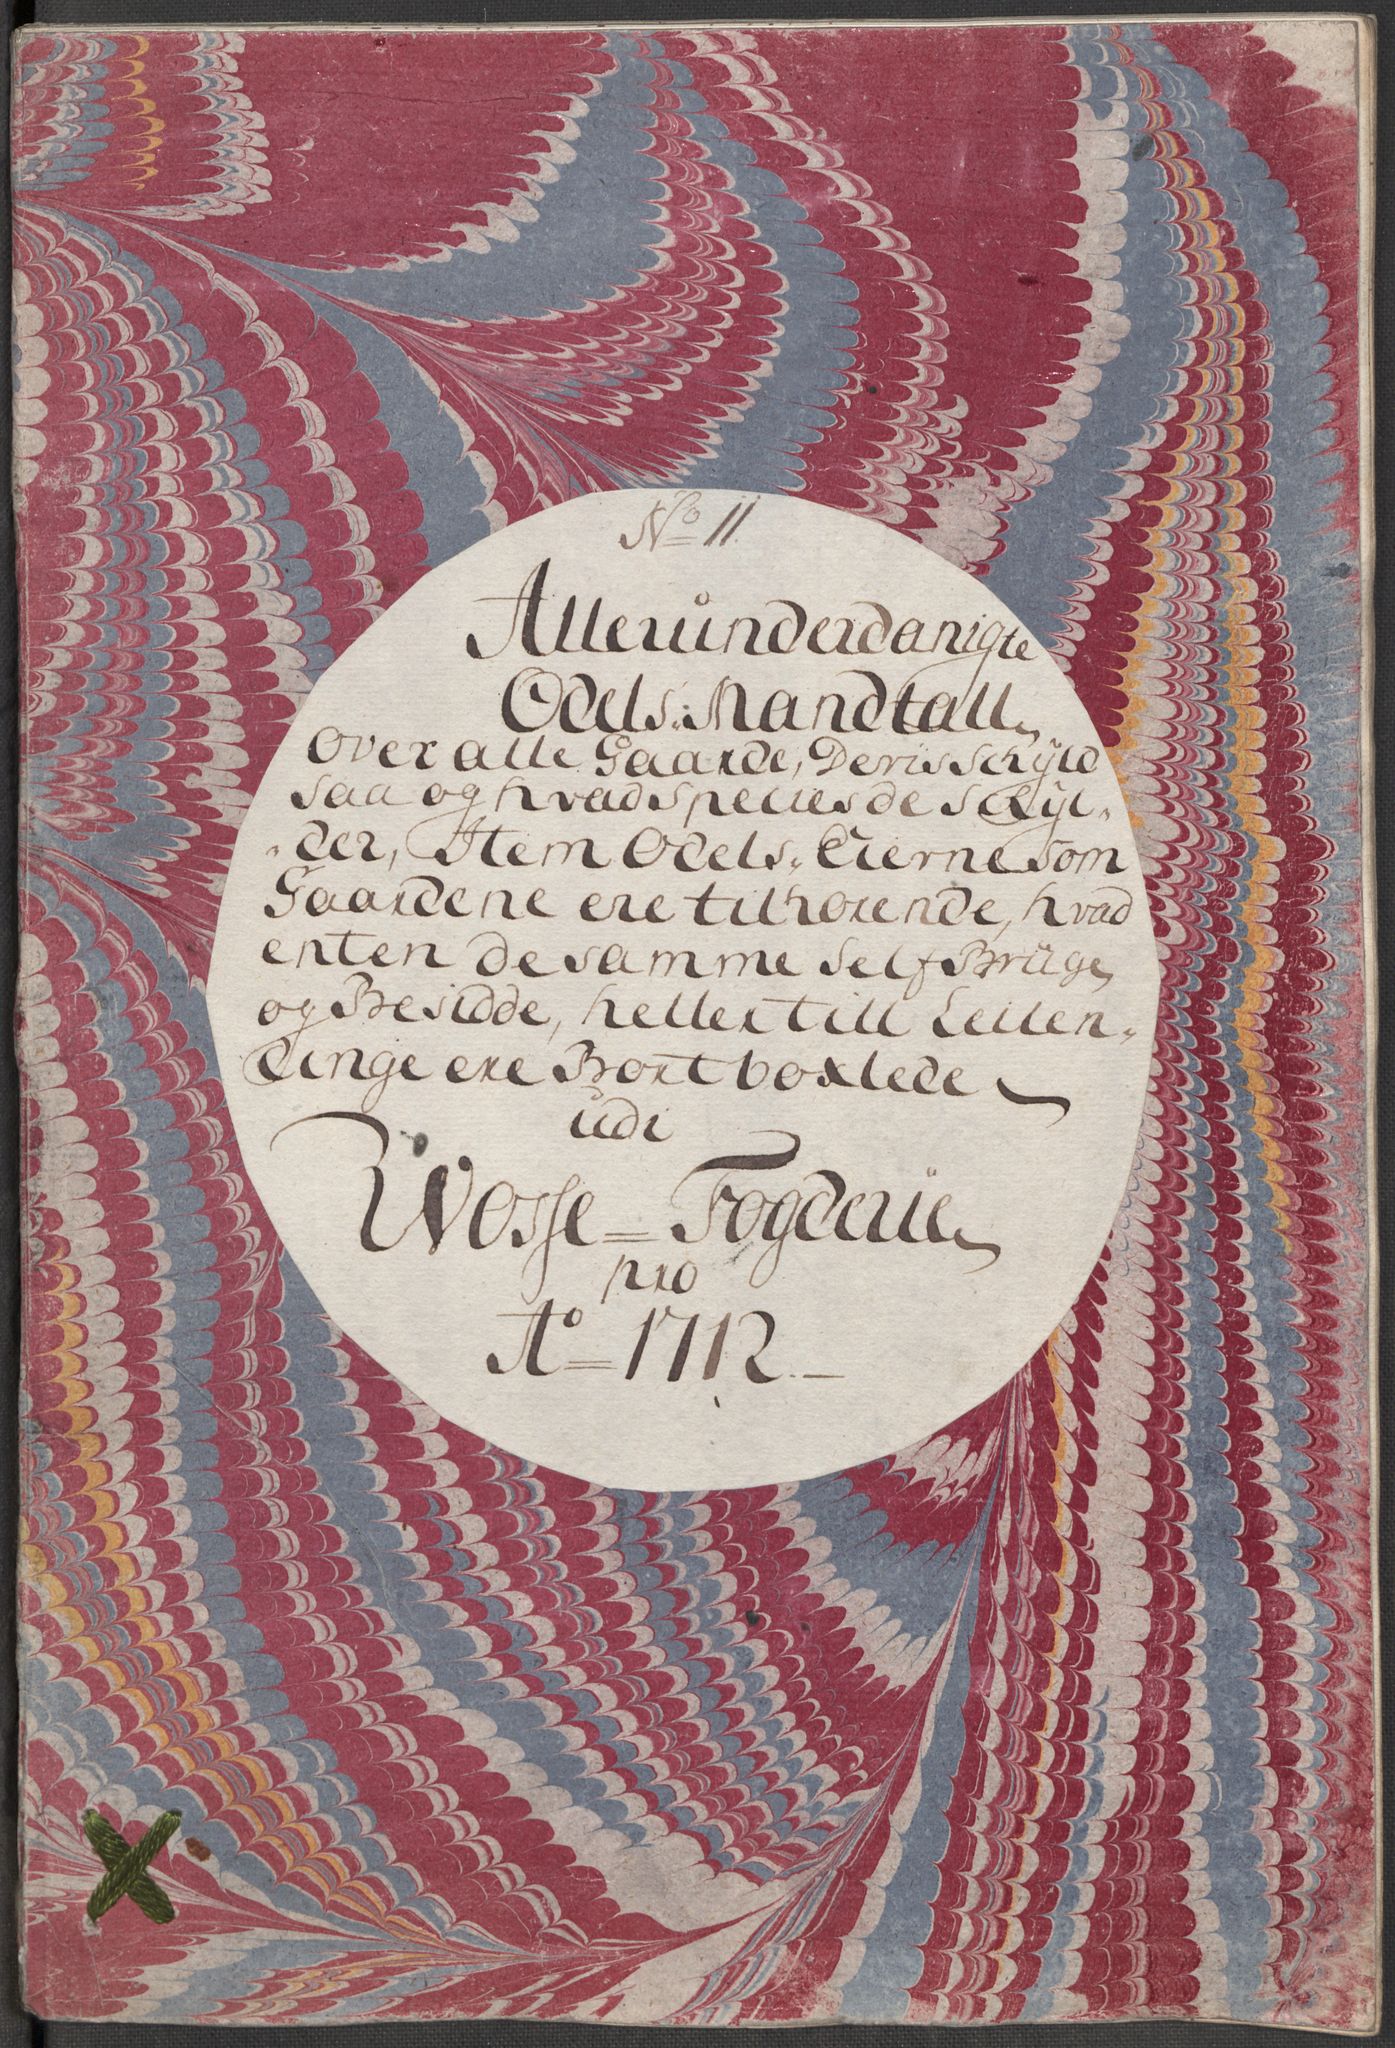 No 11.
Allerůnderdanigte
Odels: Mandtall
over alle Gaarde, Deris Schÿld
saa og hvad Speties de Schÿl-
-der, Item Odels- Eierne som
Gaardene ere tilhørende, hvad
enten de samme Self Brüge
og Besidde, heller till Leilen-
dinge ere Bort boxlede
üdi
Wosse = Fogderie
pro
Ao = 1712.